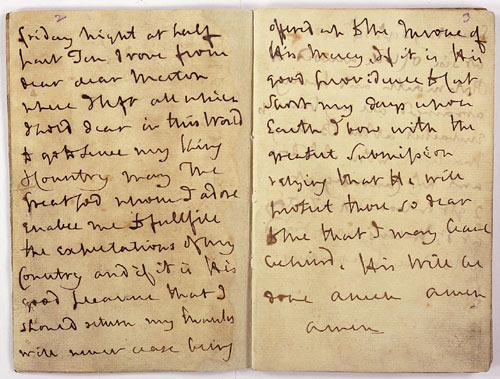 2
friday night at half
past Ten I drove from
dear dear Merton
where I left all which
I hold dear in this World
to go to serve my King
& Country may The
Great God whom I adore
enable me to fullfill
the expectations of my
Country and if it is His
good pleasure that I
should return my thanks
will never cease being
3
offered up to the Throne of
His Mercy, if it is His
good providence to cut
short my days upon
Earth I bow with the
greatest Submission
relying that He will
protect those so dear
to me that I may leave
behind. His Will be
done amen amen
amen